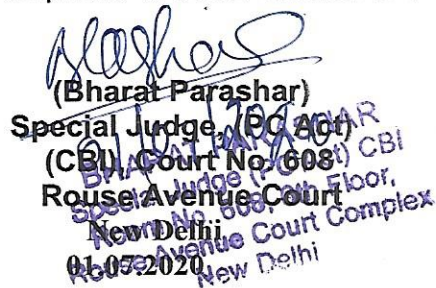 (Bharat Parashar)
Special Judge, (PC Act)
(CBI), Court No. 608
Rouse Avenue Court
New Delhi
01.07.2020
BHARAT PARASHAR
Special Judge (PC Act) CBI
Room No. 608, 6th Floor,
Rouse Avenue Court Complex
New Delhi